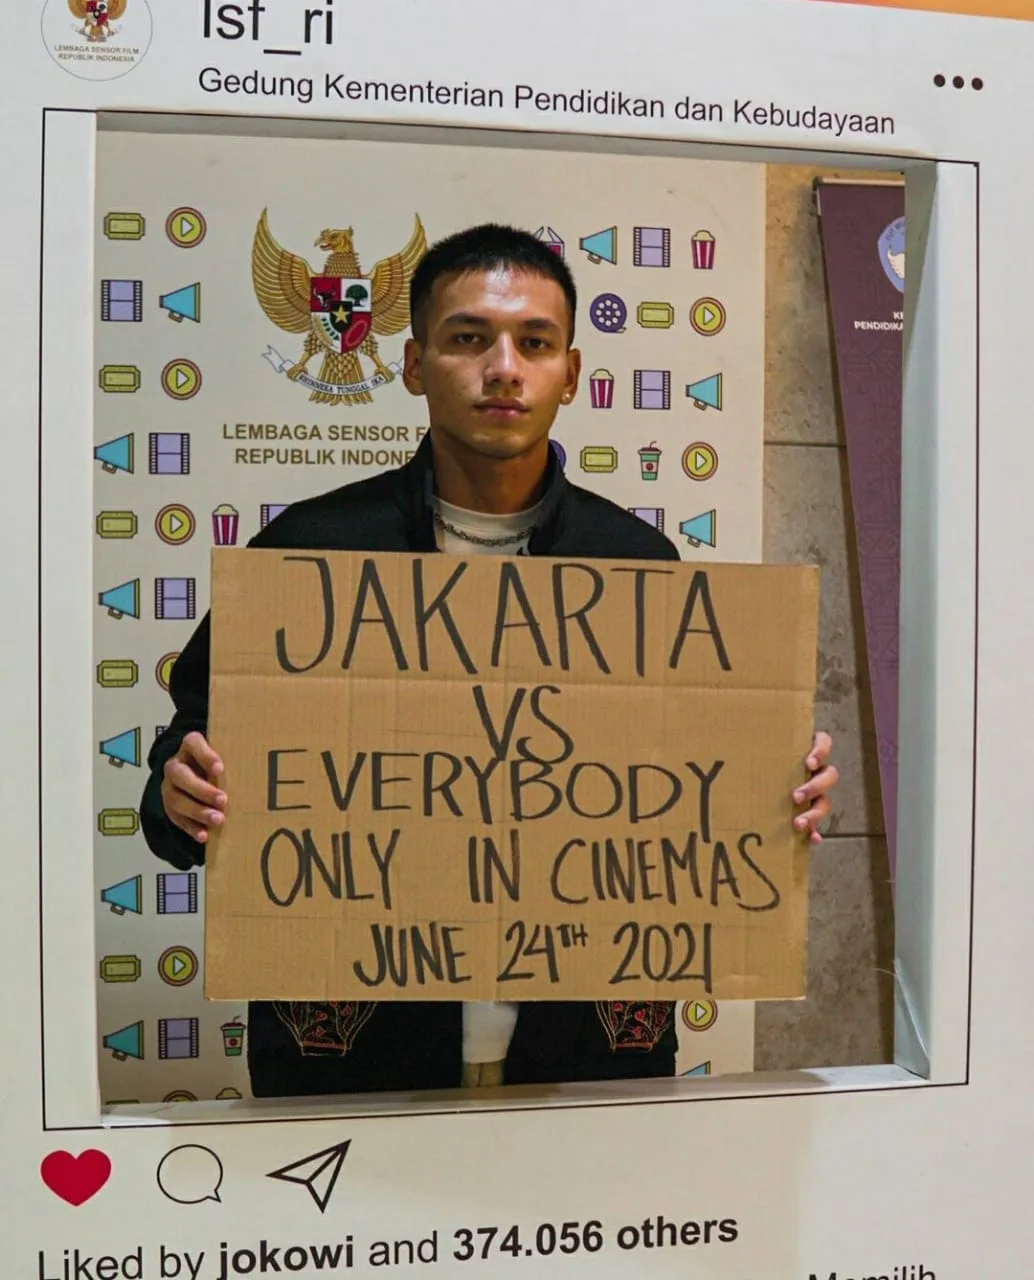 LEMBAGA SENSOR FILM
REPUBLIK INDONESIA
lsf_ri
Gedung Kementerian Pendidikan dan Kebudayaan
BHINNEKA TUNGGAL IKA
LEMBAGA SENSOR F
REPUBLIK INDONE
KE
PENDIDIKA
JAKARTA
VS
EVERYBODY
ONLY IN CINEMAS
JUNE 24TH 2021
Liked by jokowi and 374.056 others
Memilih